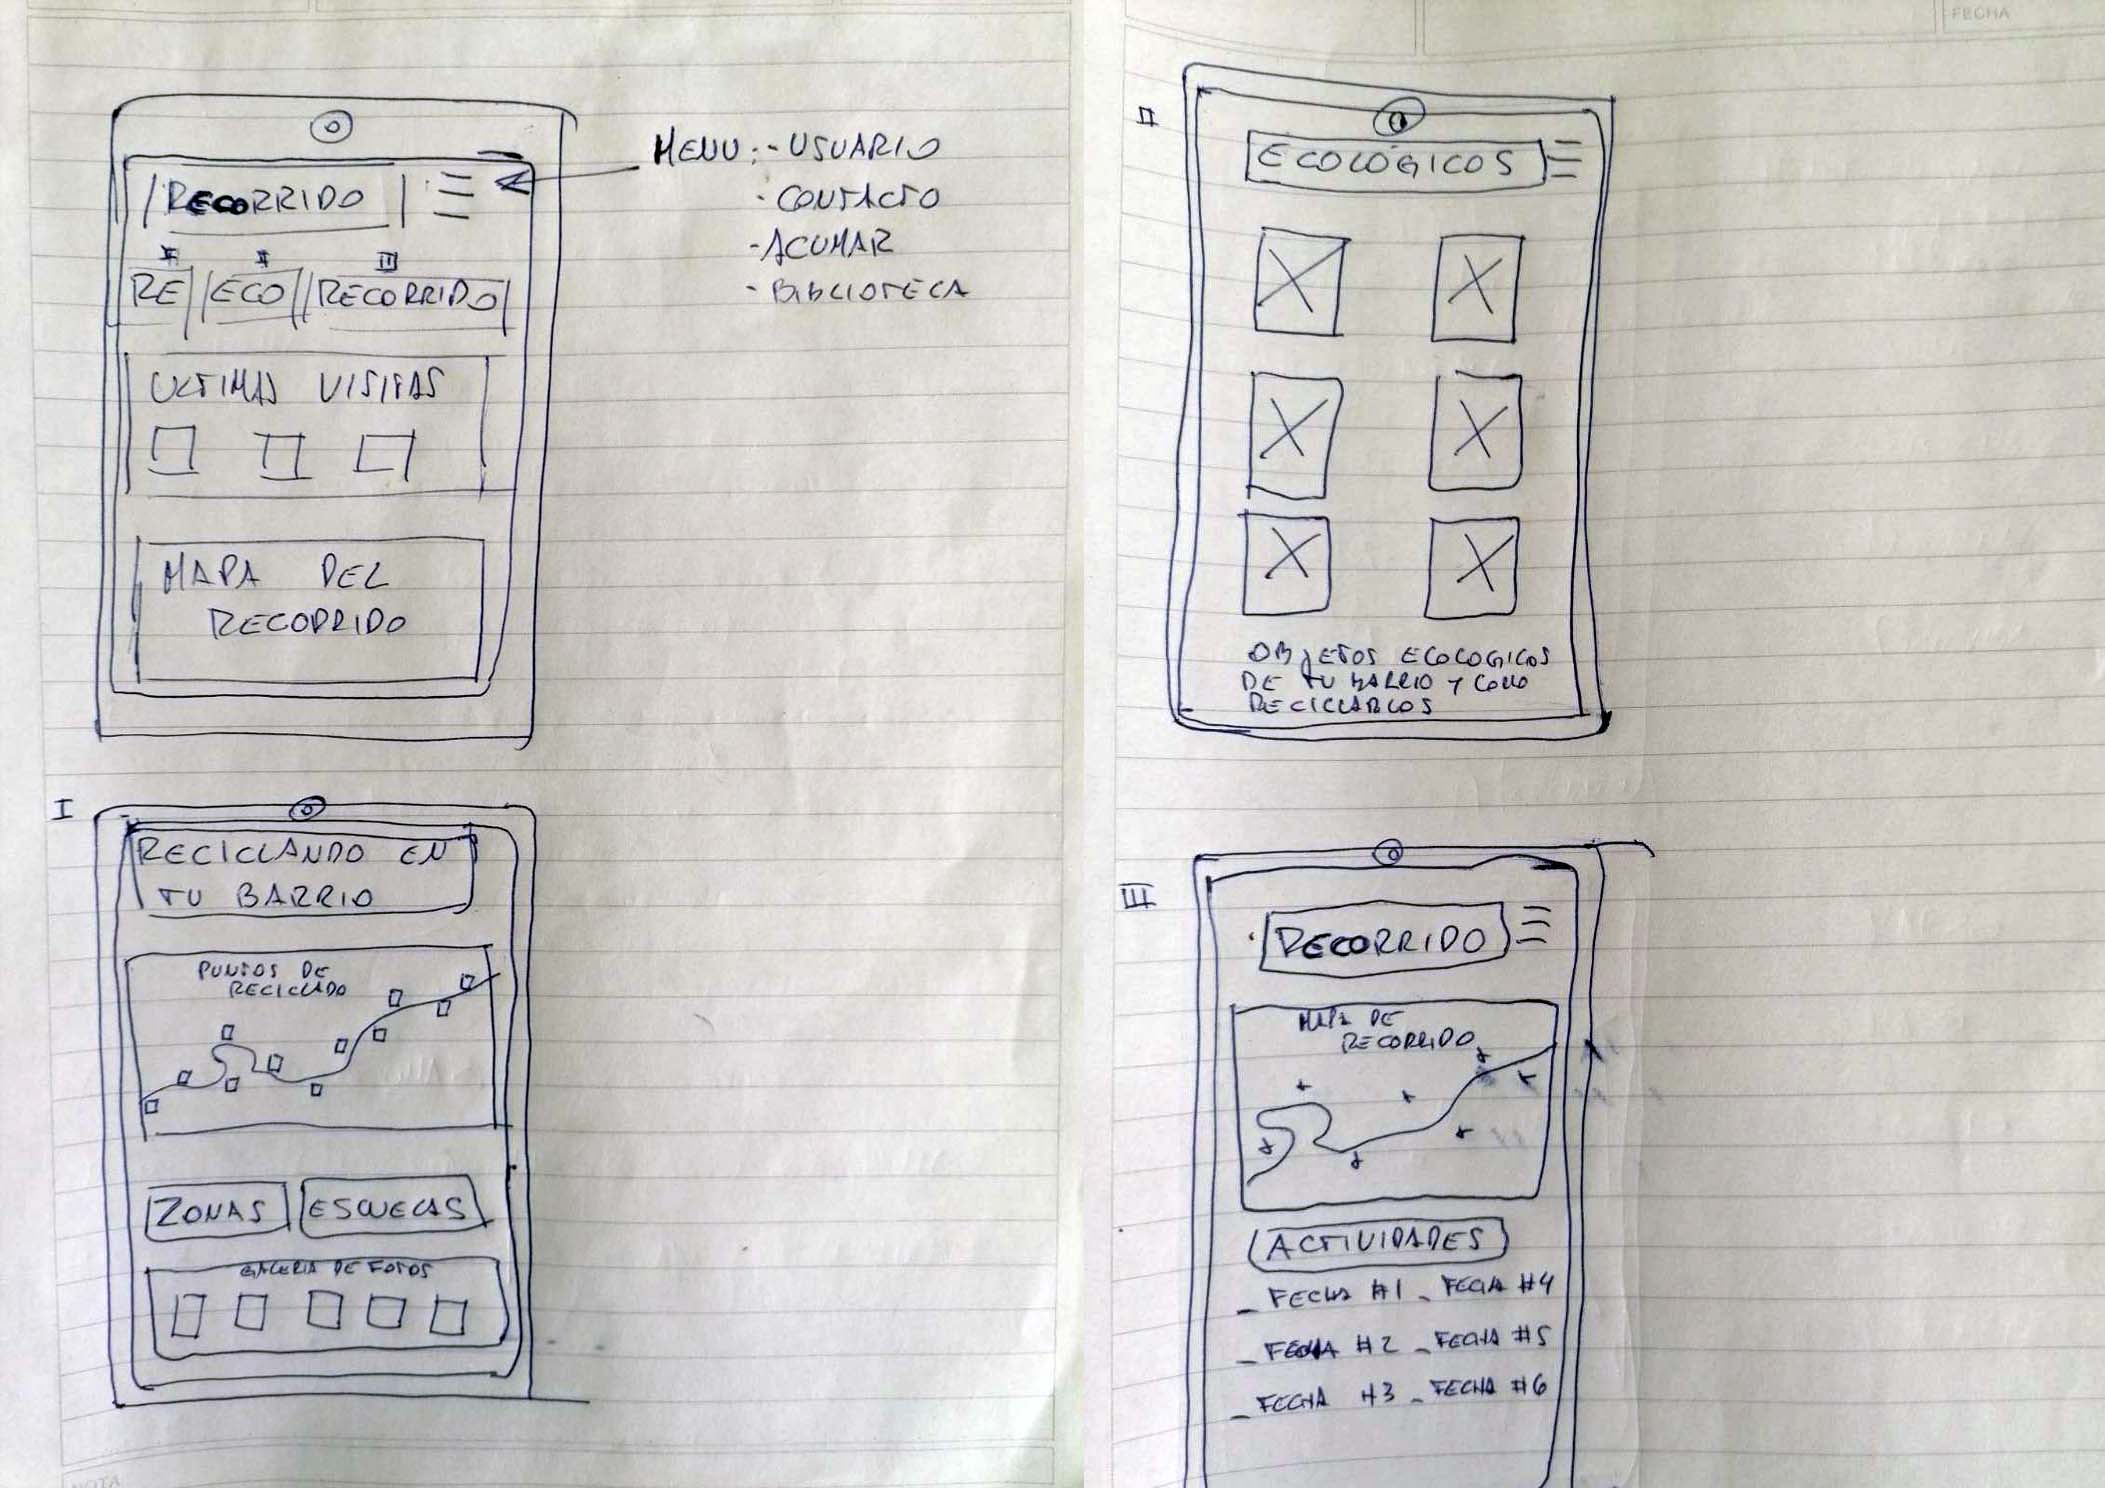 RECORRIDO
MENU: - USUARIO
- CONTACTO
- ACUMAR
- BIBLIOTECA
I II III
RE ECO RECORRIDO
ULTIMAS VISITAS
MAPA DEL
RECORRIDO
I
RECICLANDO EN
TU BARRIO
PUNTOS DE
RECICLADO
ZONAS ESCUELAS
GALERIA DE FOTOS
NOTA
FECHA
II
ECOLÓGICOS
OBJETOS ECOLOGICOS
DE TU BARRIO Y COMO
RECICLARLOS
III
RECORRIDO
MAPA DE
RECORRIDO
ACTIVIDADES
_ FECHA #1 _ FECHA #4
_ FECHA #2 _ FECHA #5
_ FECHA #3 _ FECHA #6